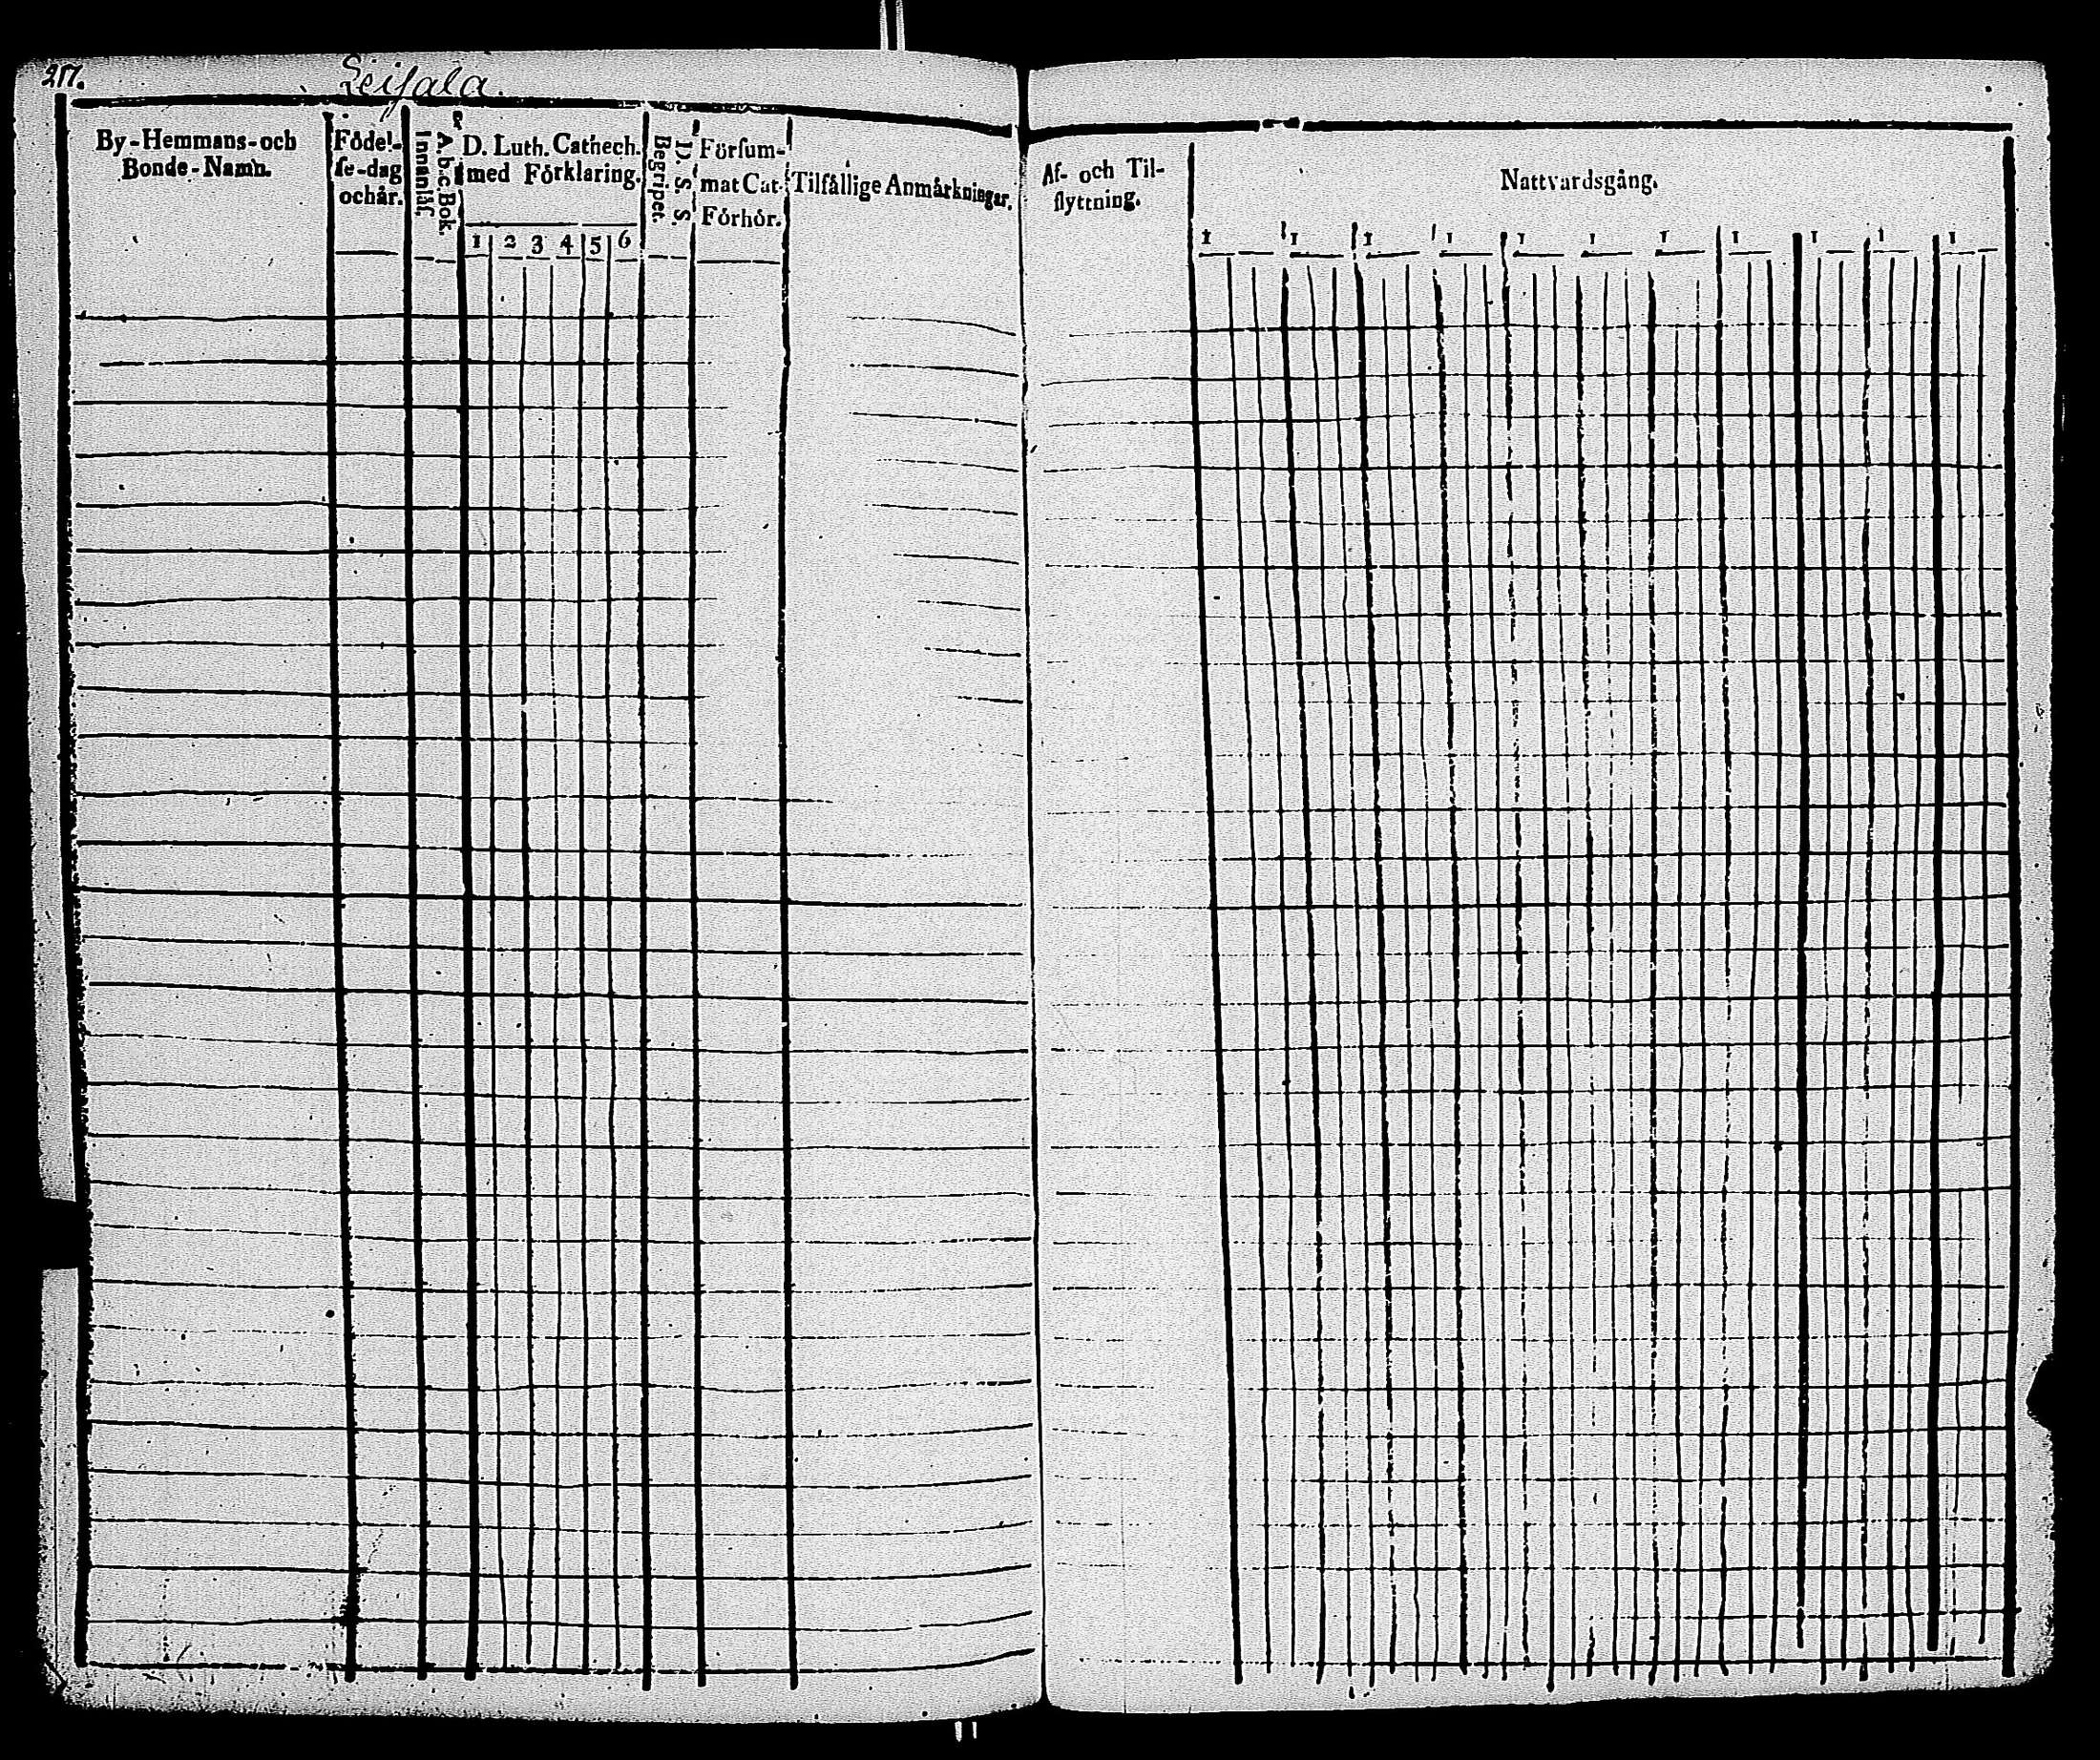 217.
Leisala.
By-Hemmans-och
Bonde-Namn.
Födel-
se-dag
och år.
Innanläs.
A b c Bok. &
D. Luth. Cathech.
med Förklaring.
1 2 3 4 5 6
Begripet.
D. S. S.
Försum-
mat Cat.
Förhör.
Tilfällige Anmärkningar.
Af- och Til-
flyttning.
Nattvardsgång.
1 1 1 1 1 1 1 1 1 1 1